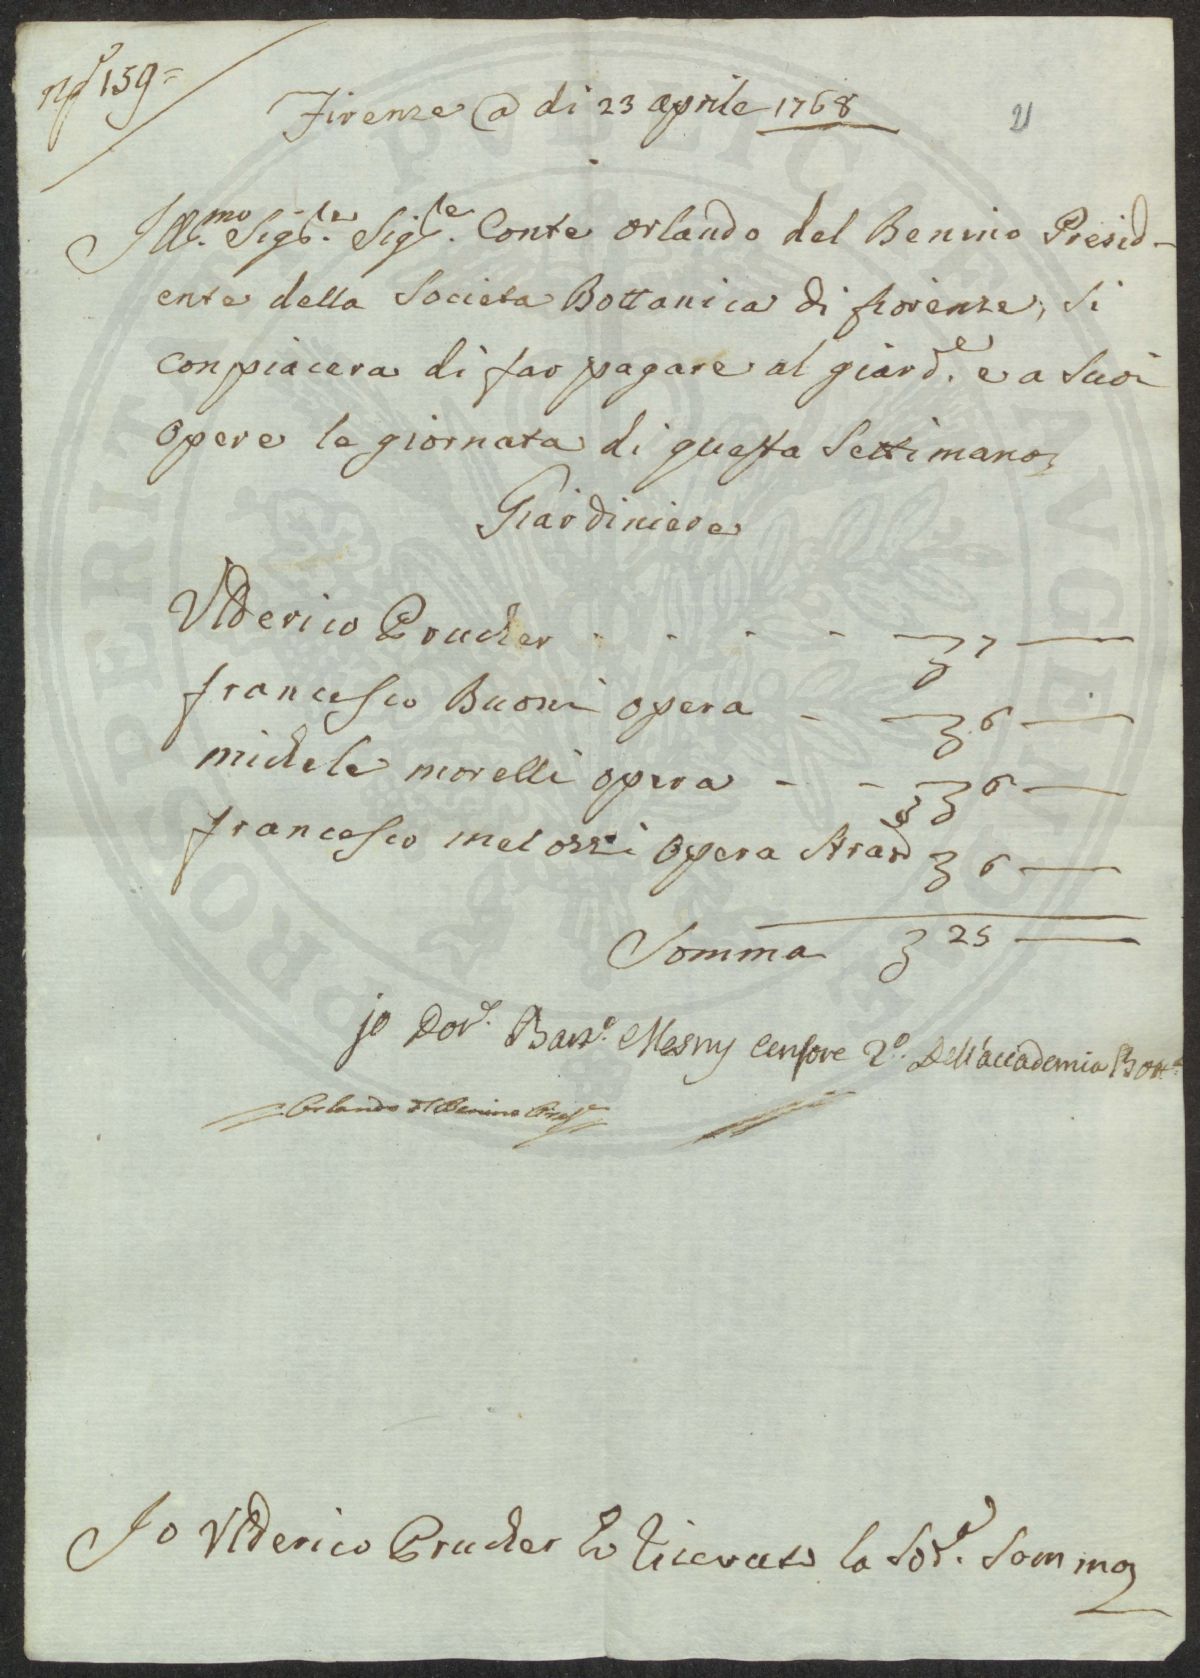 N.º 159=
Firenze @ di 23 aprile 1768
Ill.mo Sig.re Sig.re Conte orlando del Benino Presid-
ente della Societa Bottanica di fiorenze, Si
conpiacera di far pagare al giard.e e a Suoi
opere le giornata di questa Settimana
Giardiniere
Vlderico Prucker - - - - 7 —
francesco Buoni opera - 6 —
michele morelli opera - - 6 —
francesco melozzi opera 6 —
Somma 25 —
jo Dor. Bart.º Mesny Censore 2º. Dell'accademia Bott.ca
Orlando del Benino Presid.e
Io Vlderico Prucker ho ricevuto la Sod.a Somma